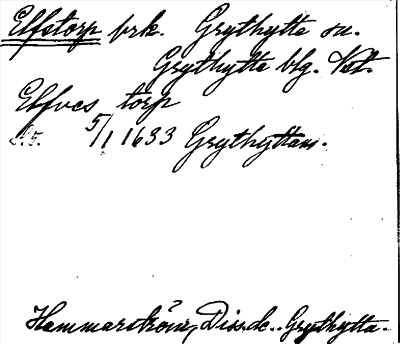 Elfstorp prk. Grythytte sn.
Grythytte blg. Vstm.
Elfves torp
5/1 1633 Grythyttan.
Hammarström, Diss. de. Grythytta.